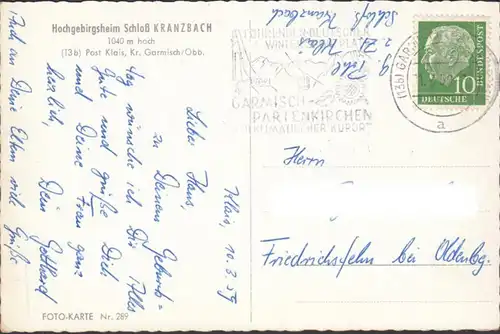 Hochgebirgsheim Schloß KRANZBACH
1040 m hoch
(13b) Post Klais, Kr. Garmisch/Obb.
Klais, 10.3.59
Lieber Hans,
zu Deinem Geburts=
tag wünsche ich Dir Alles
Gute und grüße Dich
und Deine Frau ganz
herzlich,
Dein Gotthard
Auch an Deine Eltern viele Grüße
FOTO-KARTE Nr. 289
z. Zt. Klais
Schloß Kranzbach
WINTERSPORTPLATZ
GARMISCH-
PARTENKIRCHEN
HEILKLIMATISCHER KURORT
(13b) GARMISCH
a
10
DEUTSCHE
BUNDESPOST
Herrn
Friedrichsfehn bei Oldenbg.